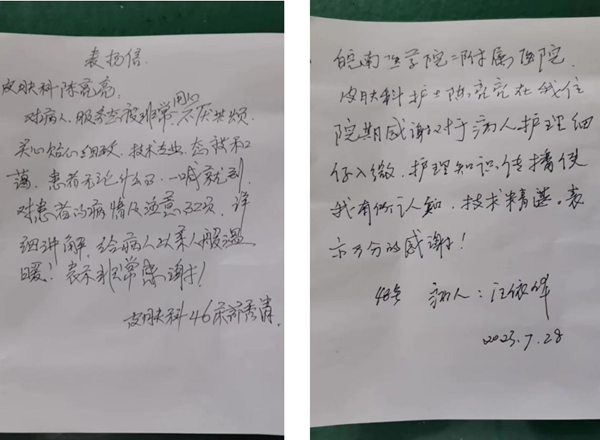 表扬信
皮肤科陈亮亮
对病人,服务态度非常用心,不厌其烦.
关心,细致,技术专业,态度和
蔼,患者无论什么事,一喊就到,
对患者的病情及注意事项,详
细讲解,给病人以亲人般温
暖!表示非常感谢!
皮肤科46床
皖南医学院二附属医院
皮肤科护士陈亮亮在我住
院期感谢对于病人护理细
仔入微.护理知识传播使
我有所认知.技术精湛.表
示万分的感谢!
病人:汪依
2023.7.28